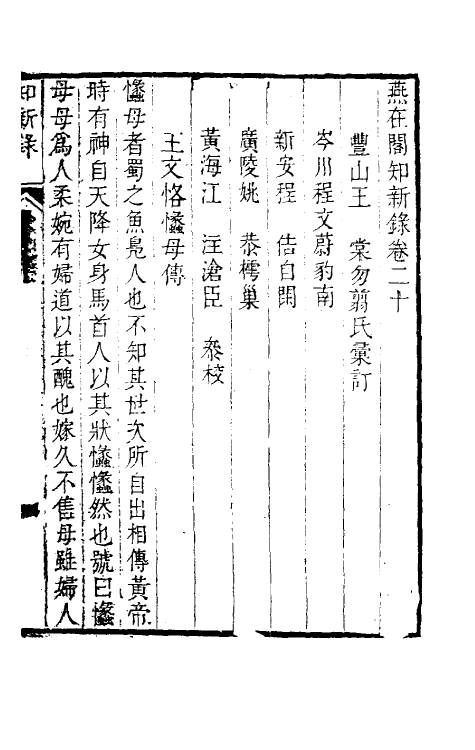 燕在閣知新錄卷二十
豐山王 棠勿翦氏彙訂
岑川程文蔚豹南
新安程 佶自閑
廣陵姚 恭樗巢
黃海江 汪滄臣 叅校
王文恪蠶母傳
蠶母者蜀之魚鳧人也不知其世次所自出相傳黃帝
時有神自天降女身馬首人以其狀蠶蠶然也號曰蠶
母母爲人柔婉有婦道以其醜也嫁久不售母雖婦人
知新錄